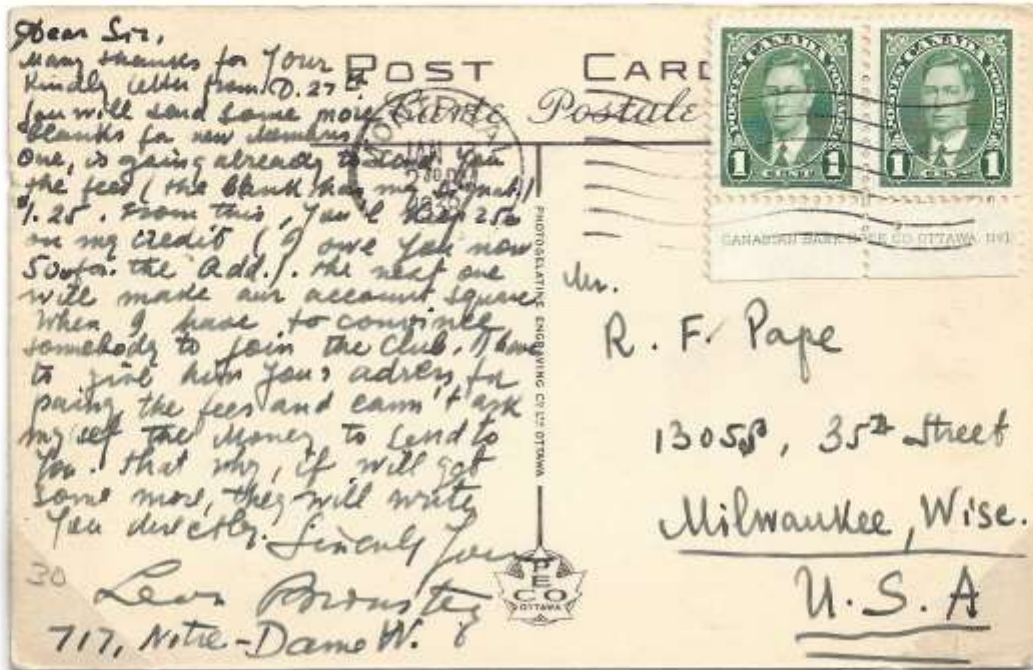 Dear Sir,
Many thanks for Your
Kindly letter from D. 27th
You will send some more
blanks for new members
One, is going already to send You
the fees (the blank has my signat.)
$1.25. From this, You'l keep 25c
on my credit (I owe You now
50c for the Add.). The next one
will made our account square
When I have to convince
somebody to join the Club, I have
to give him Your adress for
paing the fees and cann't ask
my self the Money to send to
You. That why, if will got
some more, they will write
You directly. Sincerly Yours
Leon
717, Notre-Dame W.
30
POST CARD
Carte Postale
MONTREAL
JAN
POSTES CANADA POSTAGE
1 CENT 1
POSTES CANADA POSTAGE
1 CENT 1
CANADIAN BANK NOTE CO OTTAWA, No 1
PHOTOGELATINE ENGRAVING CO. LTD. OTTAWA
PECO
OTTAWA
Mr.
R. F. Pape
35th Street
Milwaukee, Wisc.
U.S.A